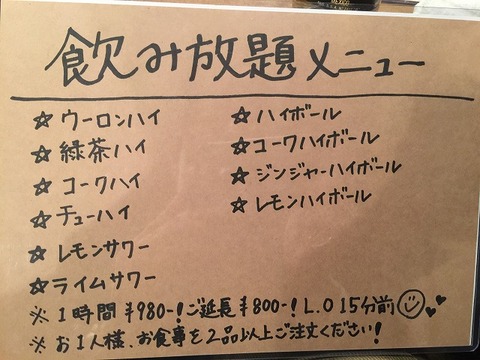 飲み放題メニュー
☆ ウーロンハイ
☆ 緑茶ハイ
☆ コークハイ
☆ チューハイ
☆ レモンサワー
☆ ライムサワー
☆ ハイボール
☆ コークハイボール
☆ ジンジャーハイボール
☆ レモンハイボール
※ 1時間¥980-!ご延長¥800-! L.O 15分前
※ お1人様、お食事を2品以上ご注文ください!